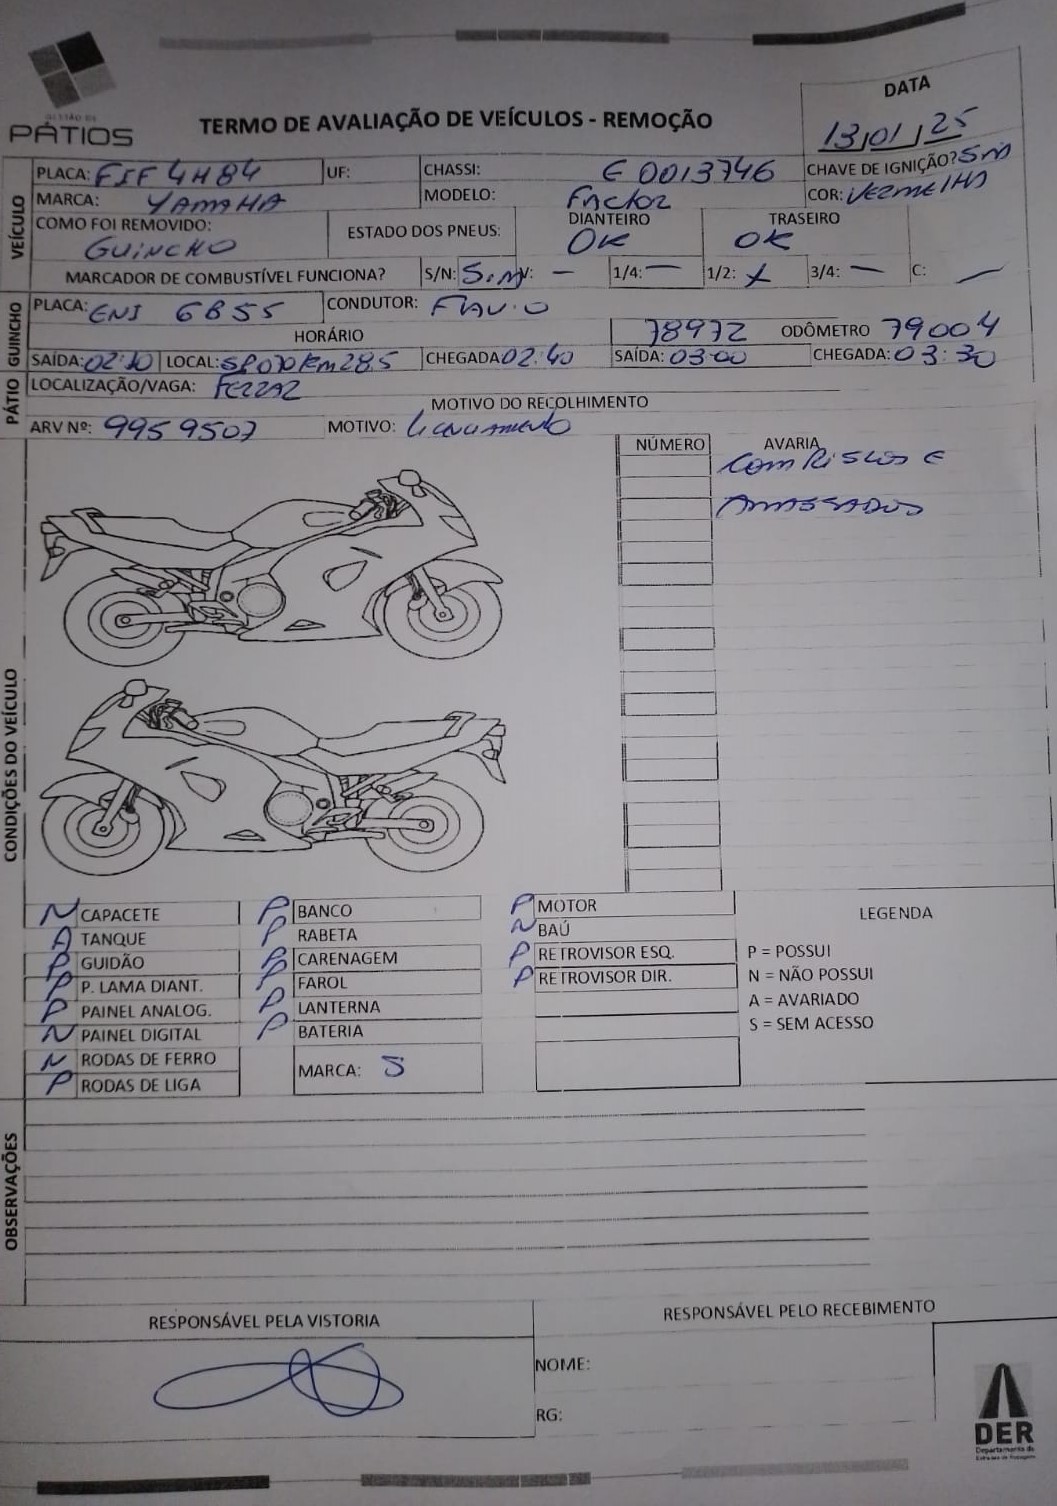 GESTÃO DE
PÁTIOS
TERMO DE AVALIAÇÃO DE VEÍCULOS - REMOÇÃO
DATA
13/01/25
VEÍCULO
PLACA: FIF 4H84 UF: CHASSI: E 0013746 CHAVE DE IGNIÇÃO? Sim
MARCA: YAMAHA MODELO: Factor COR: VERMELHA
COMO FOI REMOVIDO: GUINCHO ESTADO DOS PNEUS: DIANTEIRO OK TRASEIRO OK
MARCADOR DE COMBUSTÍVEL FUNCIONA? S/N: Sim V: — 1/4: — 1/2: X 3/4: — C: —
GUINCHO
PLACA: ENJ 6B55 CONDUTOR: FLAVIO
HORÁRIO 78972 ODÔMETRO 79004
SAÍDA: 02:10 LOCAL: SP070 Km 28.5 CHEGADA 02:40 SAÍDA: 03:00 CHEGADA: 03:30
PÁTIO
LOCALIZAÇÃO/VAGA: FERRAZ
MOTIVO DO RECOLHIMENTO
ARV Nº: 9959507 MOTIVO: Licenciamento
CONDIÇÕES DO VEÍCULO
NÚMERO AVARIA
COM RISCOS E
AMASSADOS
N CAPACETE P BANCO P MOTOR
A TANQUE P RABETA N BAÚ
P GUIDÃO P CARENAGEM P RETROVISOR ESQ.
P P. LAMA DIANT. P FAROL P RETROVISOR DIR.
P PAINEL ANALOG. P LANTERNA
N PAINEL DIGITAL P BATERIA
N RODAS DE FERRO MARCA: S
P RODAS DE LIGA
LEGENDA
P = POSSUI
N = NÃO POSSUI
A = AVARIADO
S = SEM ACESSO
OBSERVAÇÕES
RESPONSÁVEL PELA VISTORIA
RESPONSÁVEL PELO RECEBIMENTO
NOME:
RG:
DER
Departamento de
Estradas de Rodagem